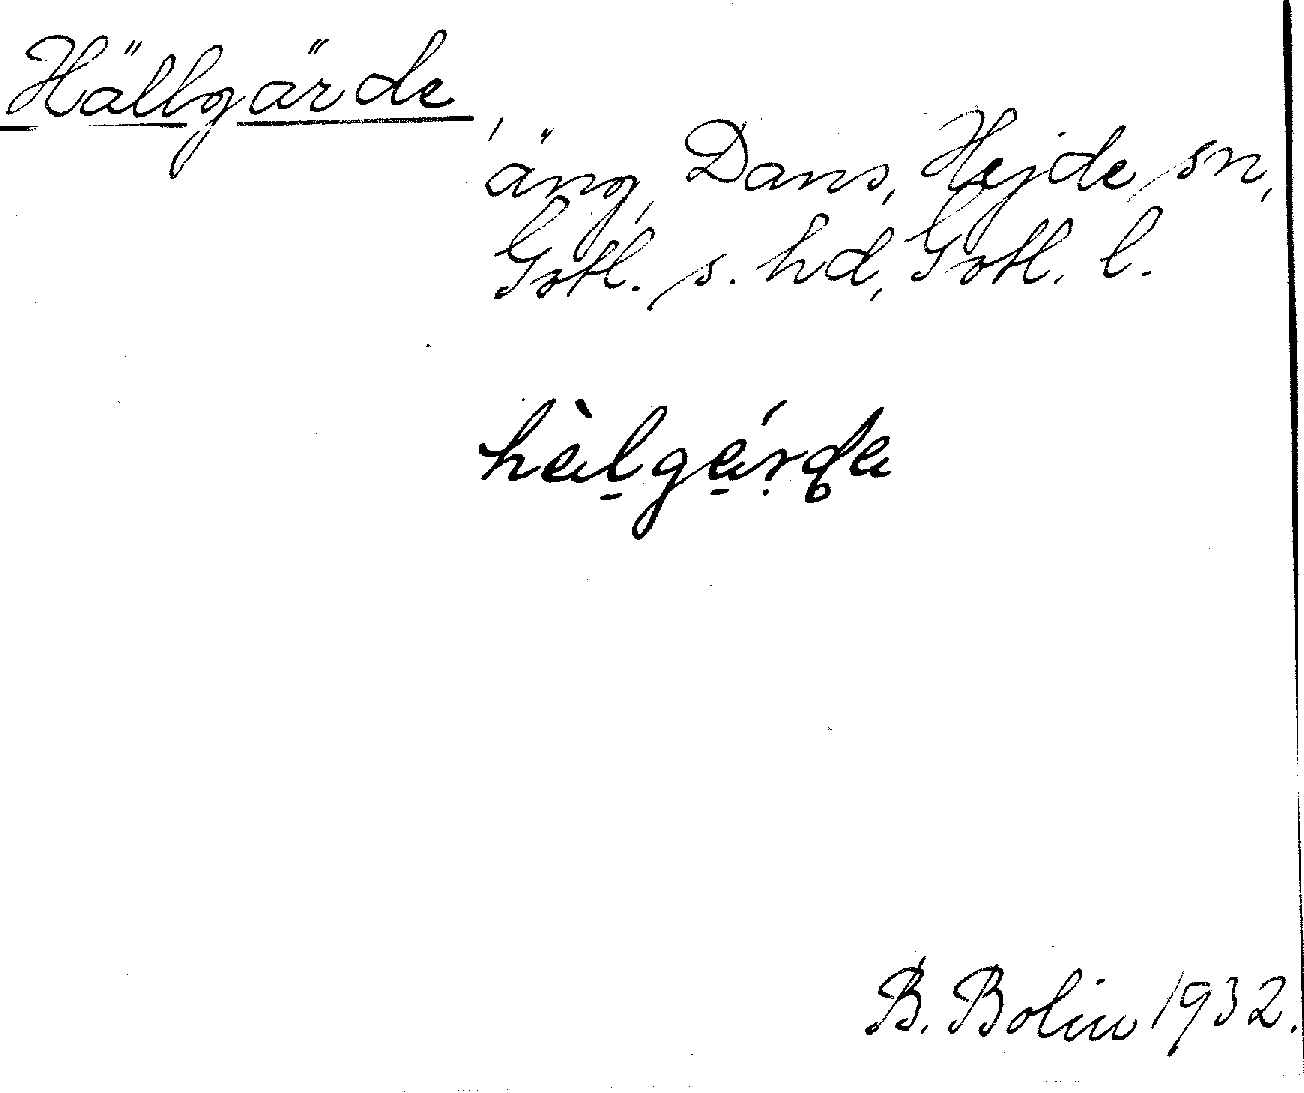 Hällgärde
äng, Dans, Hejde sn,
Gotl. s. hd, Gotl. l.
B. Bolin 1932.